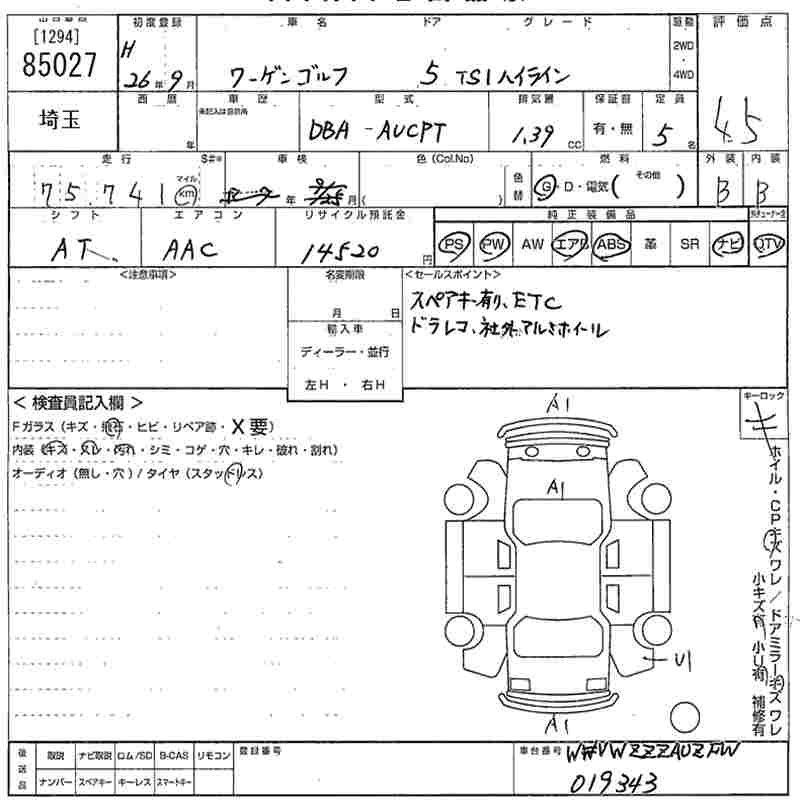 [1294] 初度登録 車名 ドア グレード 駆動 評価点
85027 H 26年9月 ワーゲンゴルフ 5 TSIハイライン 2WD・4WD
西暦 車歴 型式 排気量 保証書 定員 4.5
埼玉 年 未記入は自家用 DBA-AUCPT 1.39 CC 有・無 5名
走行 S#* 車検 色(Col.No) 燃料 外装 内装
75.741 マイル km 年 月 ( ) 色替 G・D・電気( その他 ) B B
シフト エアコン リサイクル預託金 純正装備品
AT AAC 14520円 PS PW AW エアB ABS 革 SR ナビ TV
<注意事項> 名変期限 <セールスポイント>
月 日 スペアキー有り、ETC
輸入車 ドラレコ、社外アルミホイール
ディーラー・並行
左H・右H
<検査員記入欄> キーロック
キ
Fガラス(キズ・飛石・ヒビ・リペア跡・X要)
内装(キズ・スレ・汚れ・シミ・コゲ・穴・キレ・破れ・割れ)
オーディオ(無し・穴)/タイヤ(スタッドレス)
A1
A1
U1
A1
ホイル・CPキズワレ/ドアミラーキズワレ
小キズ有 小U有 補修有
後送品 取説 ナビ取説 ロム/SD B-CAS リモコン 登録番号 車台番号 WVWZZZAUZFW
ナンバー スペアキー キーレス スマートキー 019343